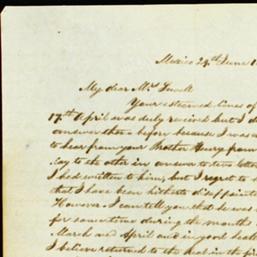 Mexico 24th June 1
My dear Mrs Lowell
Your esteemed lines of
17th April was duly received but I d
answer them before because I was a
to hear from your Brother Harry from
Cay to the other in answer to two lette
I had written to him, but I regret to s
that I have been hitherto disappointe
However I can tell you that he was
for sometime during the months
March and April and in good heal
I believe returned to the